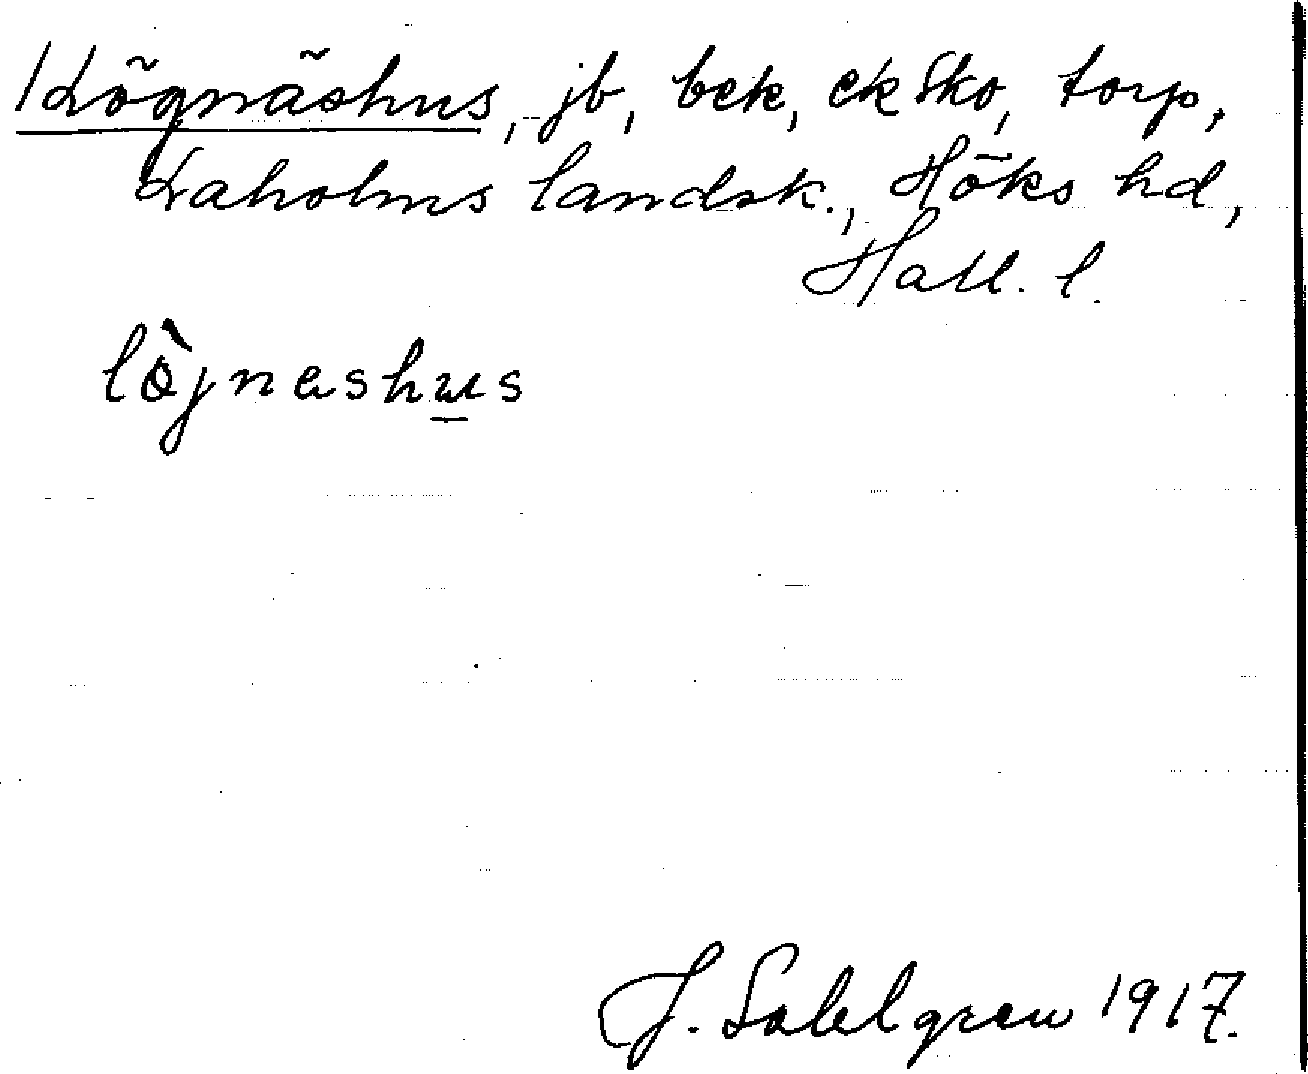 Lögnäshus, jb, bek, ek Sko, torp,
Laholms landsk., Höks hd,
Hall. l.
lö̀jnashu̲s
J. Sahlgren 1917.